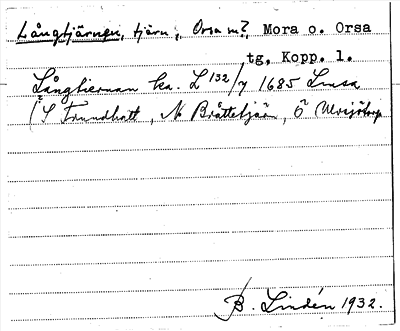 Långtjärnen, tjärn, Orsa sn?, Mora o. Orsa
tg, Kopp. l.
Långtiernan ka. L 132/7 1685 Lmsa
(S Trundhatt, N Bråttetjär, Ö
B. Lindén 1932.